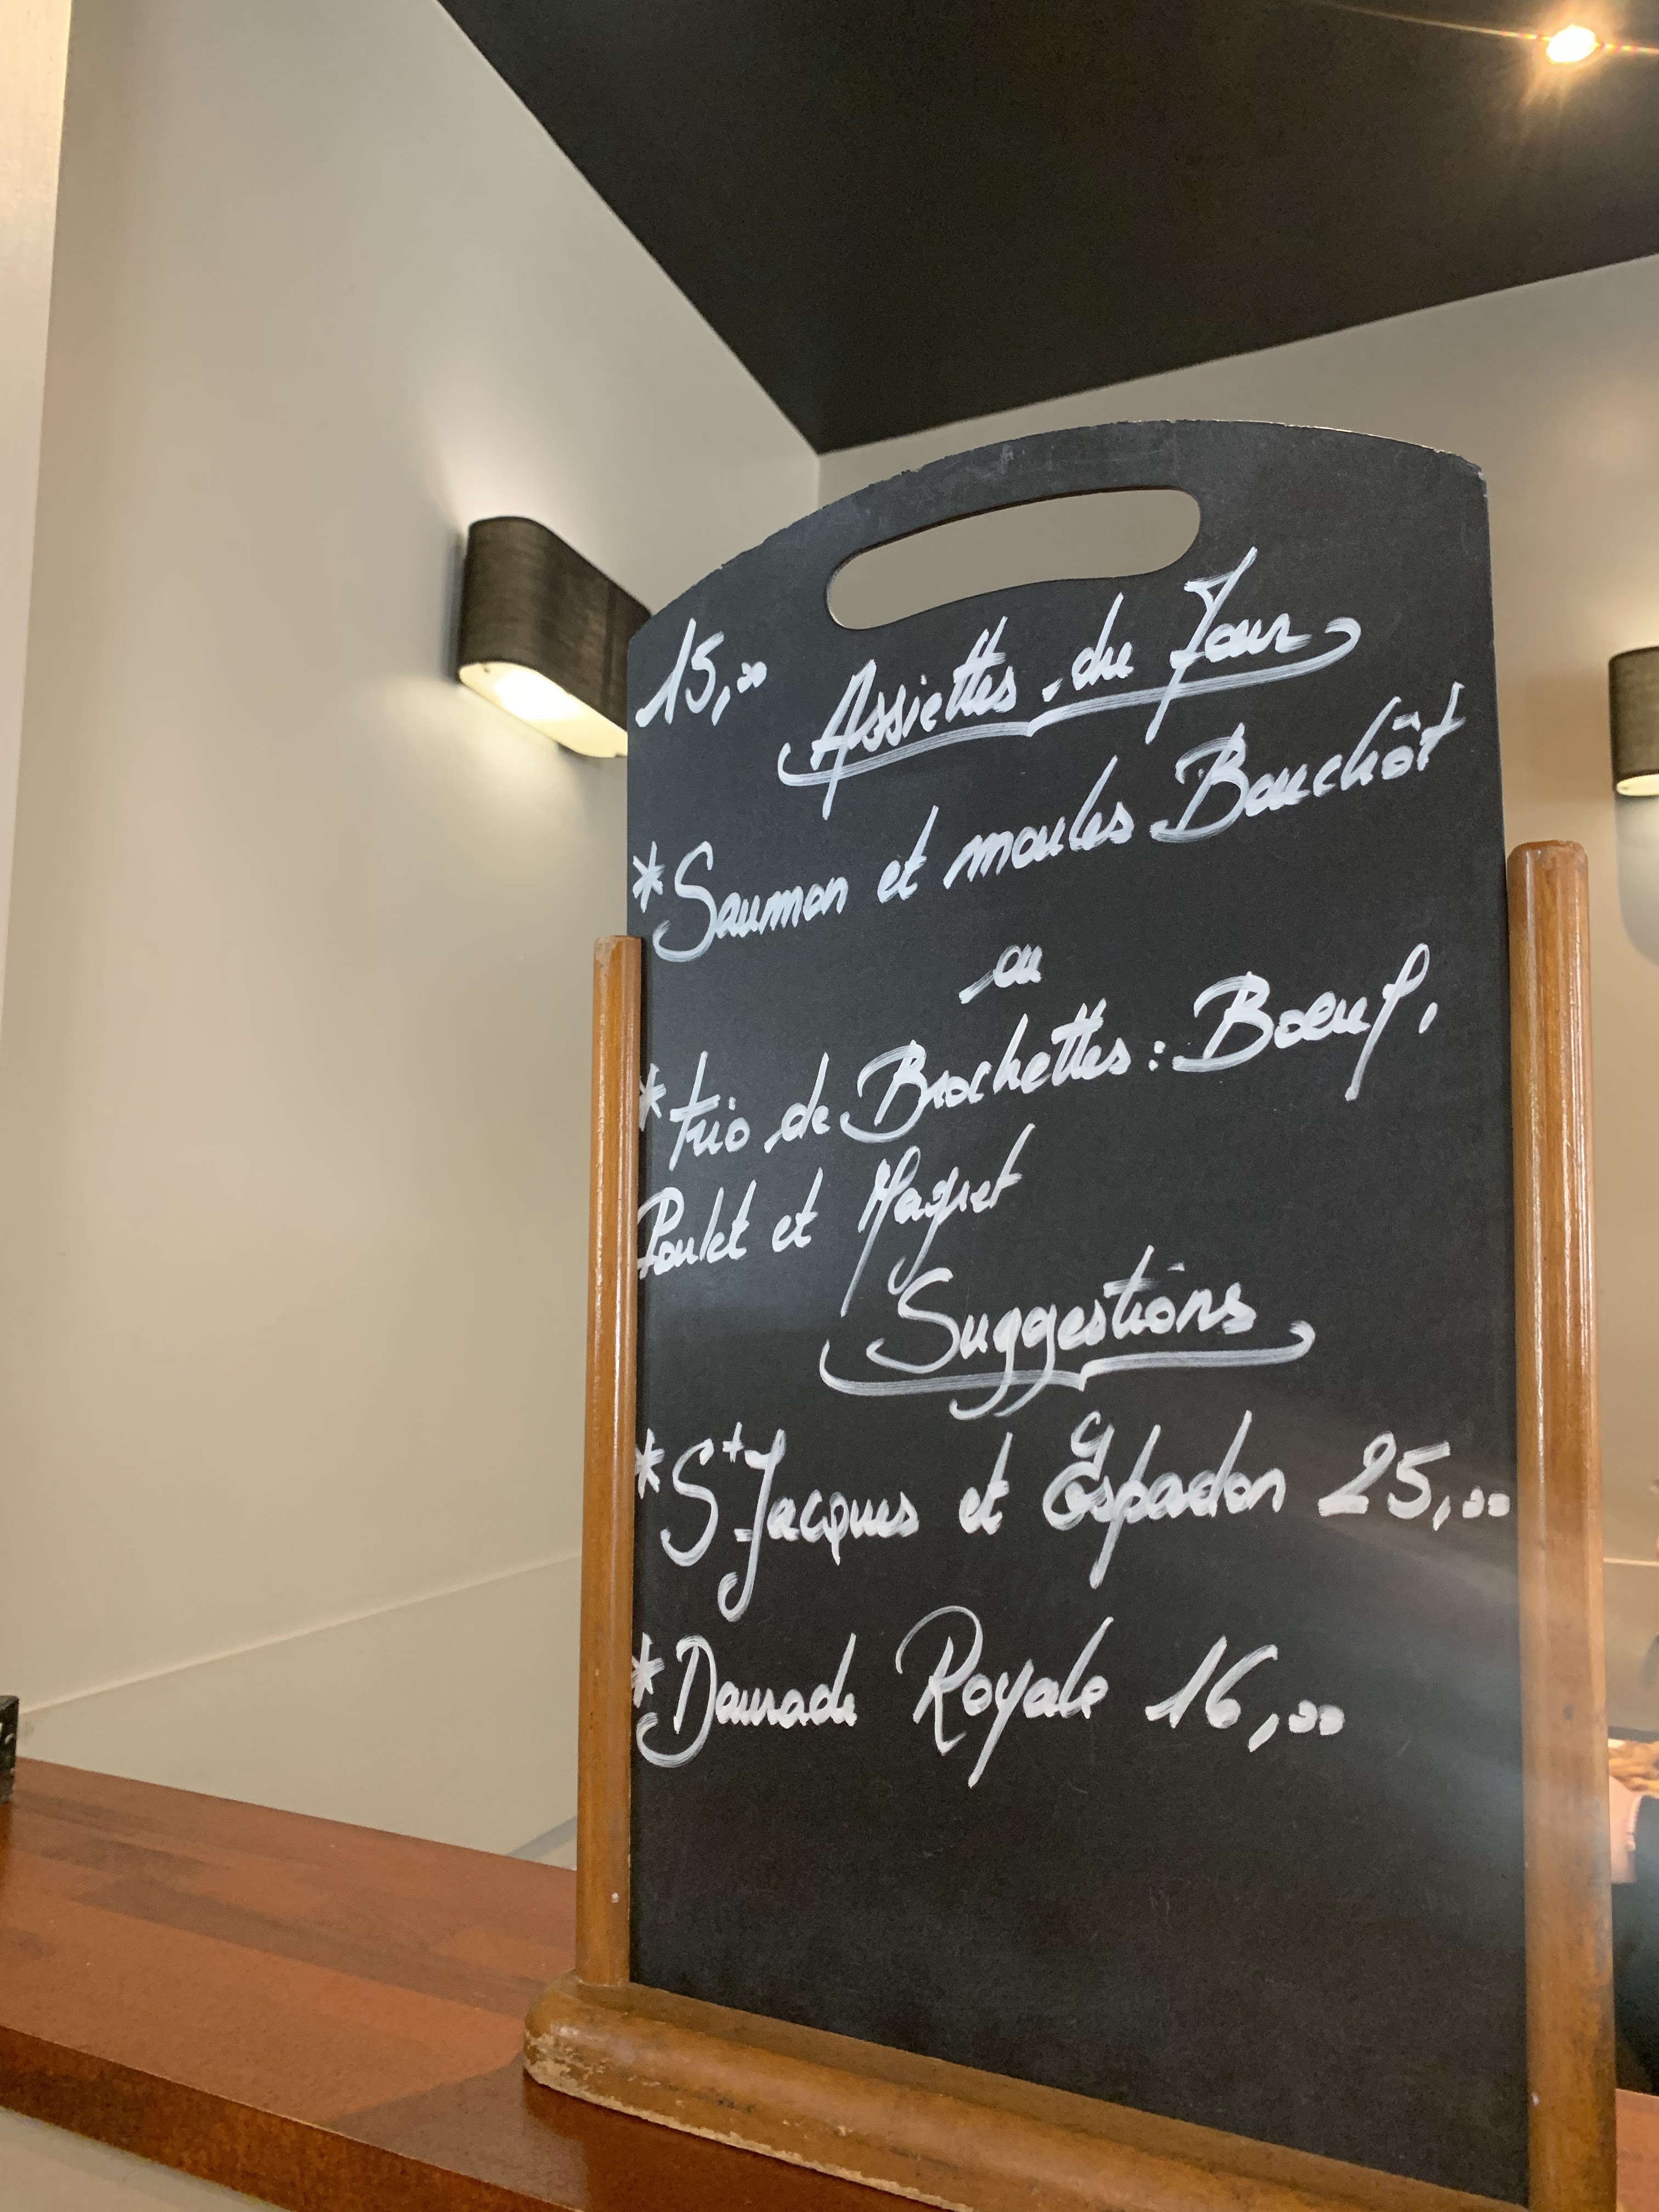 15,00 Assiettes du Jour
*Saumon et moules Bouchôt
ou
*trio de Brochettes : Boeuf,
Poulet et Magret
Suggestions
*St Jacques et Espadon 25,00
*Daurade Royale 16,00